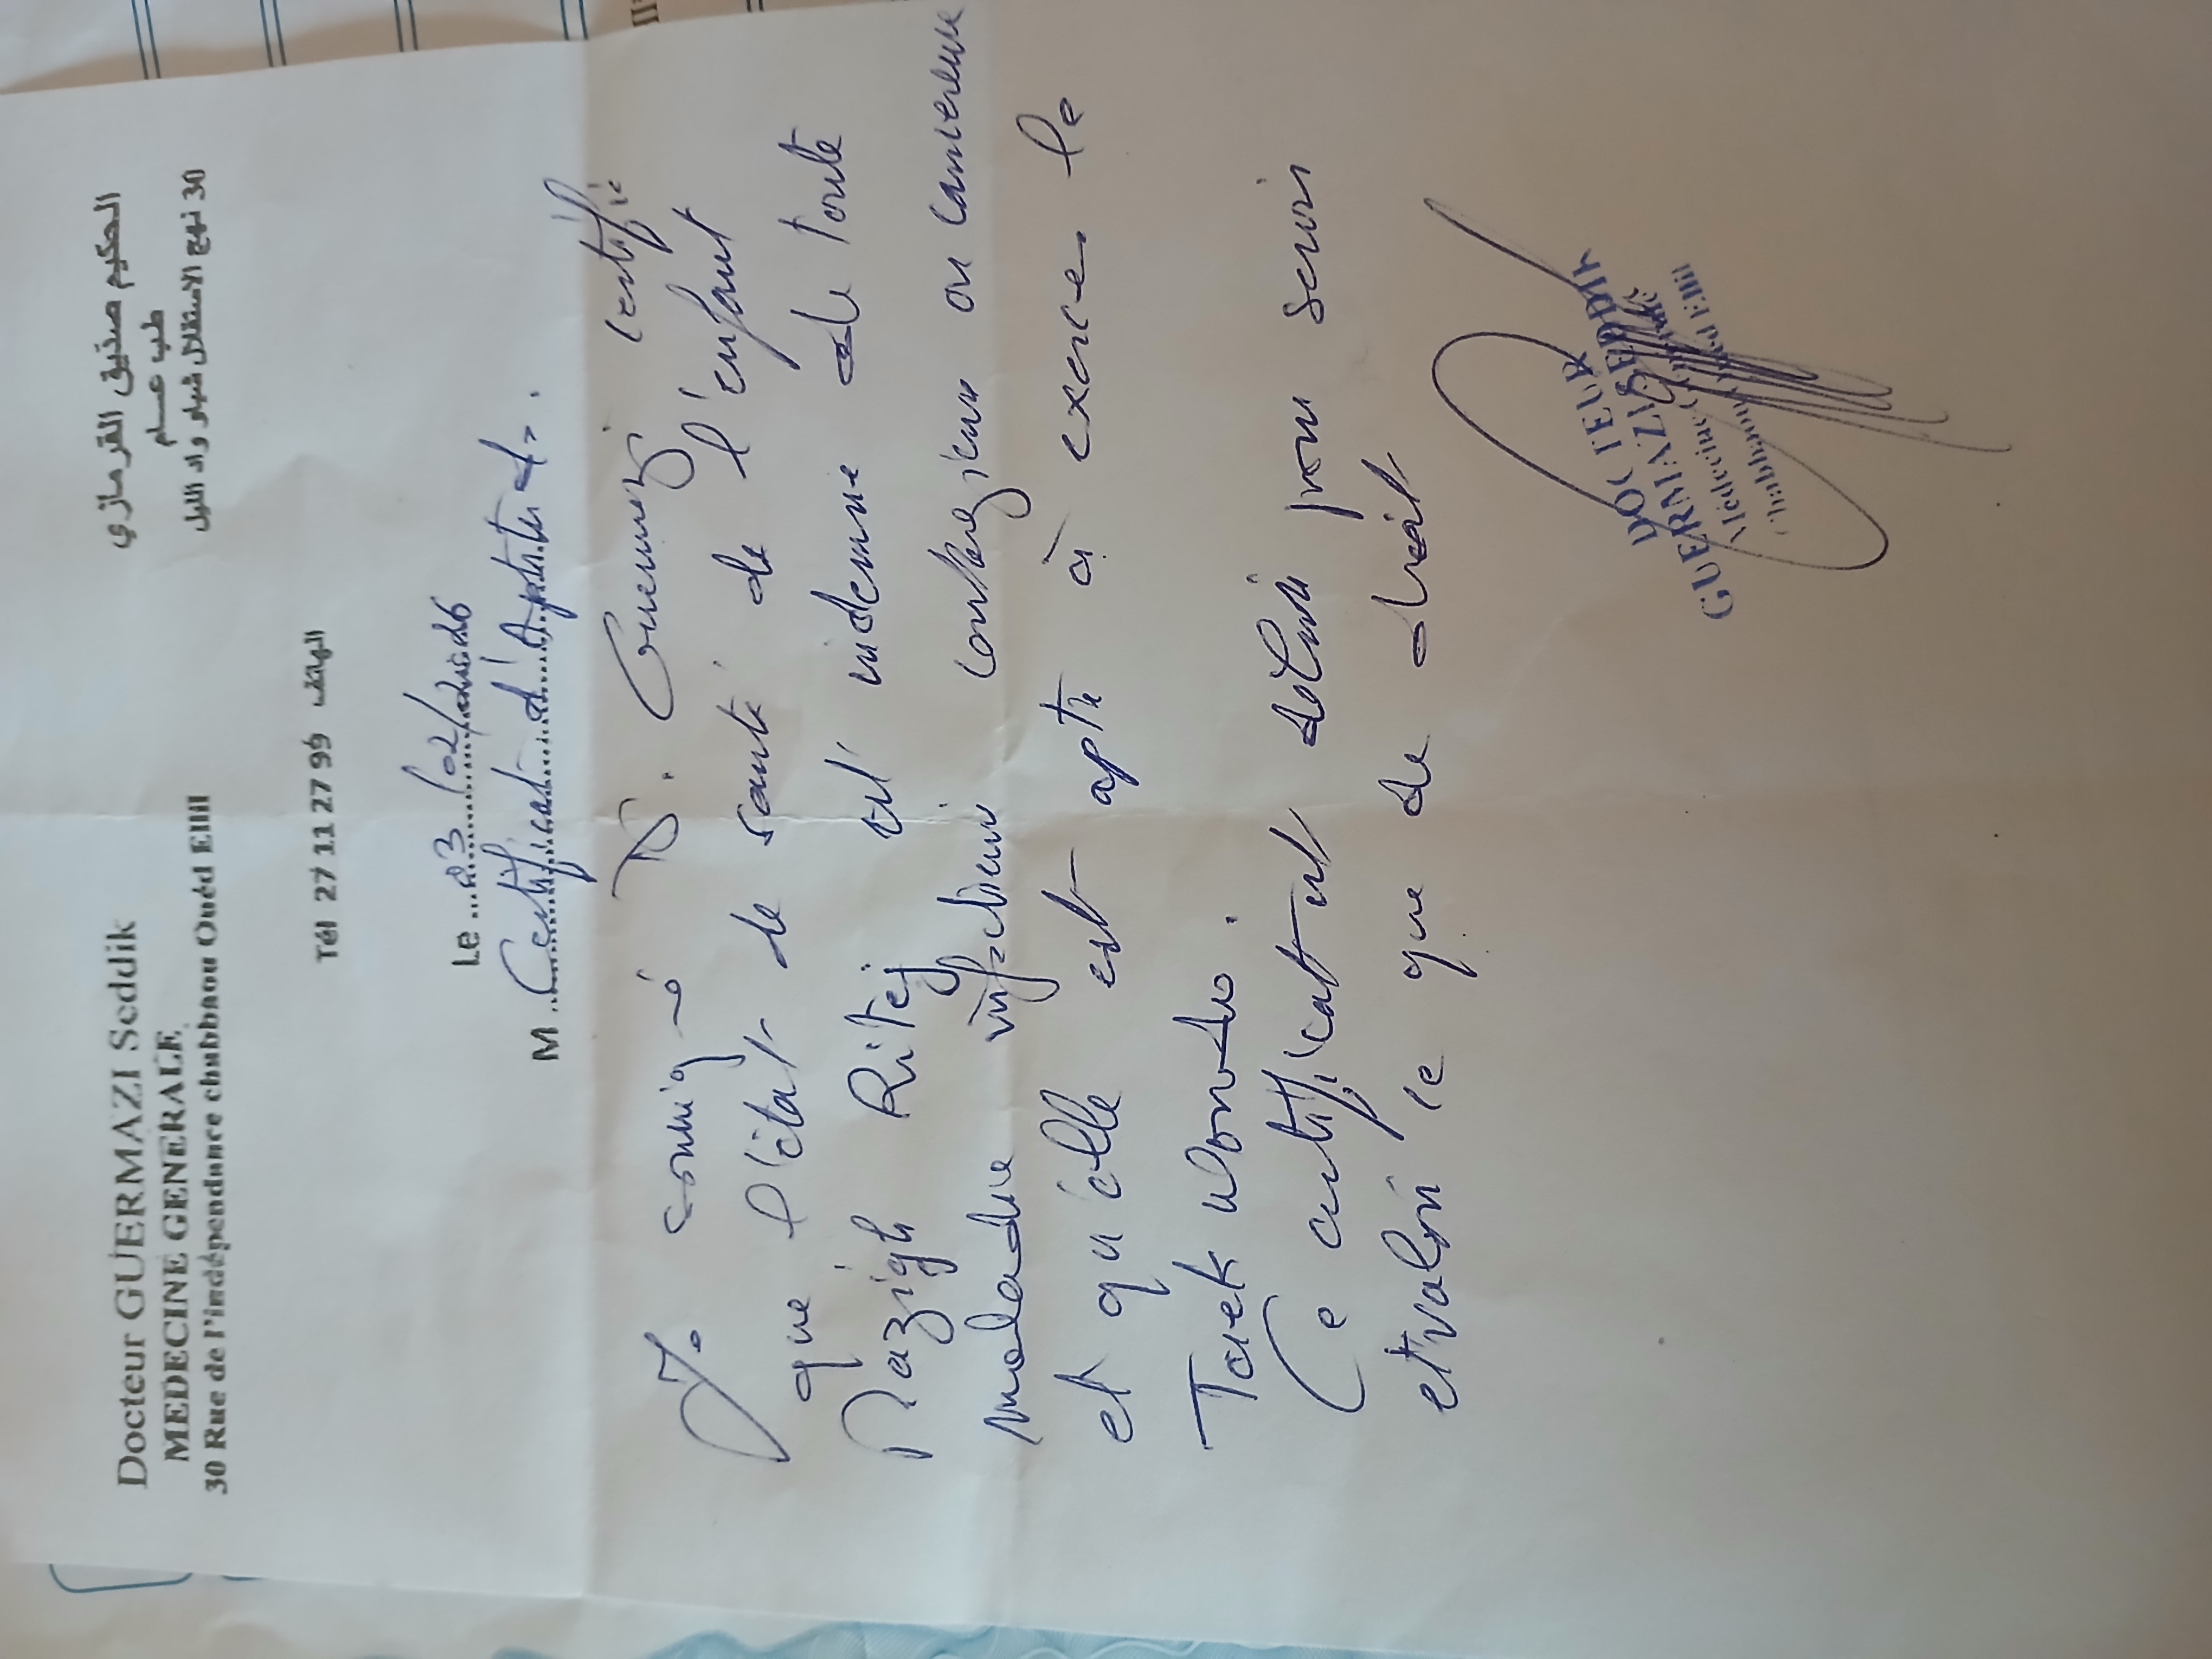 Docteur GUERMAZI Seddik
الحكيم صديق القرمازي
MEDECINE GENERALE
طب عـــام
30 Rue de l'indépendance chubbaou Ouéd Ellil
30 نهج الاستقلال شباو واد الليل
Tél 27 11 27 99 الهاتف
Le 03/02/2026
M Certificat d'Aptitude.
Je soussigné Dr. Guermazi certifie
que l'état de santé de l'enfant
Mazigh Ritej est indemne de toute
maladie infectieuse contagieuse ou cancereuse
et qu'elle est apte à exercer le
Taekwondo.
Ce certificat est délivré pour servir
et valoir ce que de droit
DOCTEUR
GUERMAZI SEDDIK